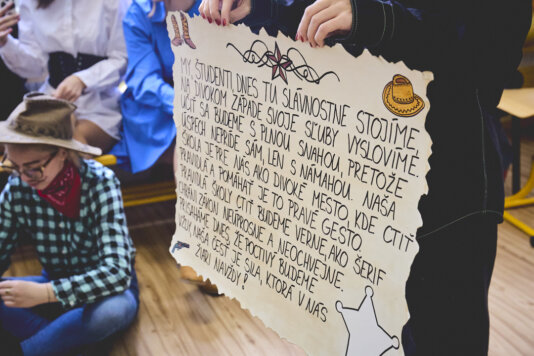 MY, ŠTUDENTI, DNES TU SLÁVNOSTNE STOJÍME,
NA DIVOKOM ZÁPADE SVOJE SĽUBY VYSLOVÍME.
UČIŤ SA BUDEME S PLNOU SNAHOU, PRETOŽE
ÚSPECH NEPRÍDE SÁM, LEN S NÁMAHOU.
ŠKOLA JE PRE NÁS AKO DIVOKÉ MESTO, KDE CTIŤ
PRAVIDLÁ A POMÁHAŤ JE TO PRAVÉ GESTO.
PRAVIDLÁ ŠKOLY CTIŤ BUDEME VERNE, AKO ŠERIF
CHRÁNI ZÁKON NEÚPROSNE A NEOCHVEJNE.
PRÍSAHÁME DNES, ŽE POCTIVÍ BUDEME
VŽDY, NAŠA ČESŤ JE SILA, KTORÁ V NÁS
ŽIARI NAVŽDY!